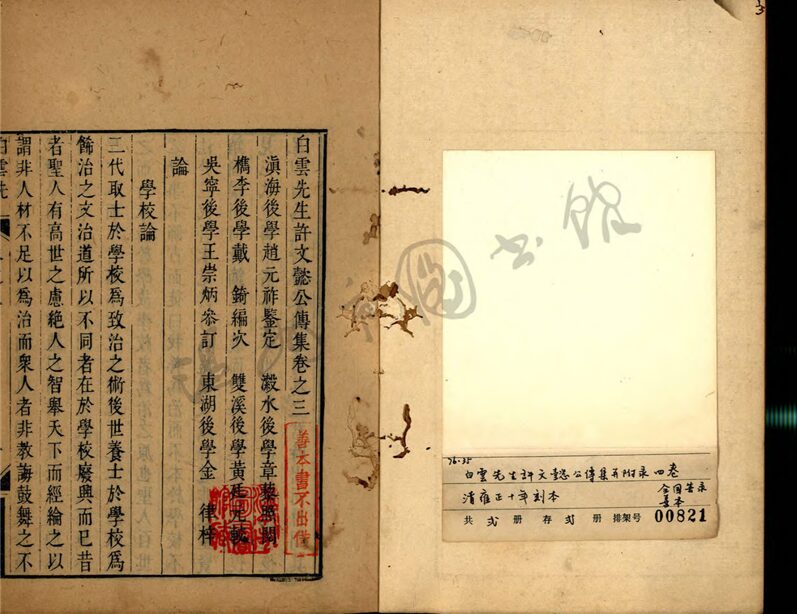 白雲先生許文懿公傳集卷之三
滇海後學趙元祚鑒定　瀫水後學章藜照閱
檇李後學戴　錡編次　雙溪後學黃廷元載
吳寧後學王崇炳叅訂　東湖後學金　律梓
論
學校論
三代取士於學校爲致治之術後世養士於學校爲
飾治之文治道所以不同者在於學校廢興而已昔
者聖人有高世之慮絶人之智舉天下而經綸之以
謂非人材不足以爲治而衆人者非教誨鼓舞之不
白雲先
善本書不出借
圖書館
76.35
白雲先生許文懿公傳集並附录四卷
清雍正十年刻本
全国善录
善本
共 弍 册 存 弍 册 排架号 00821
13